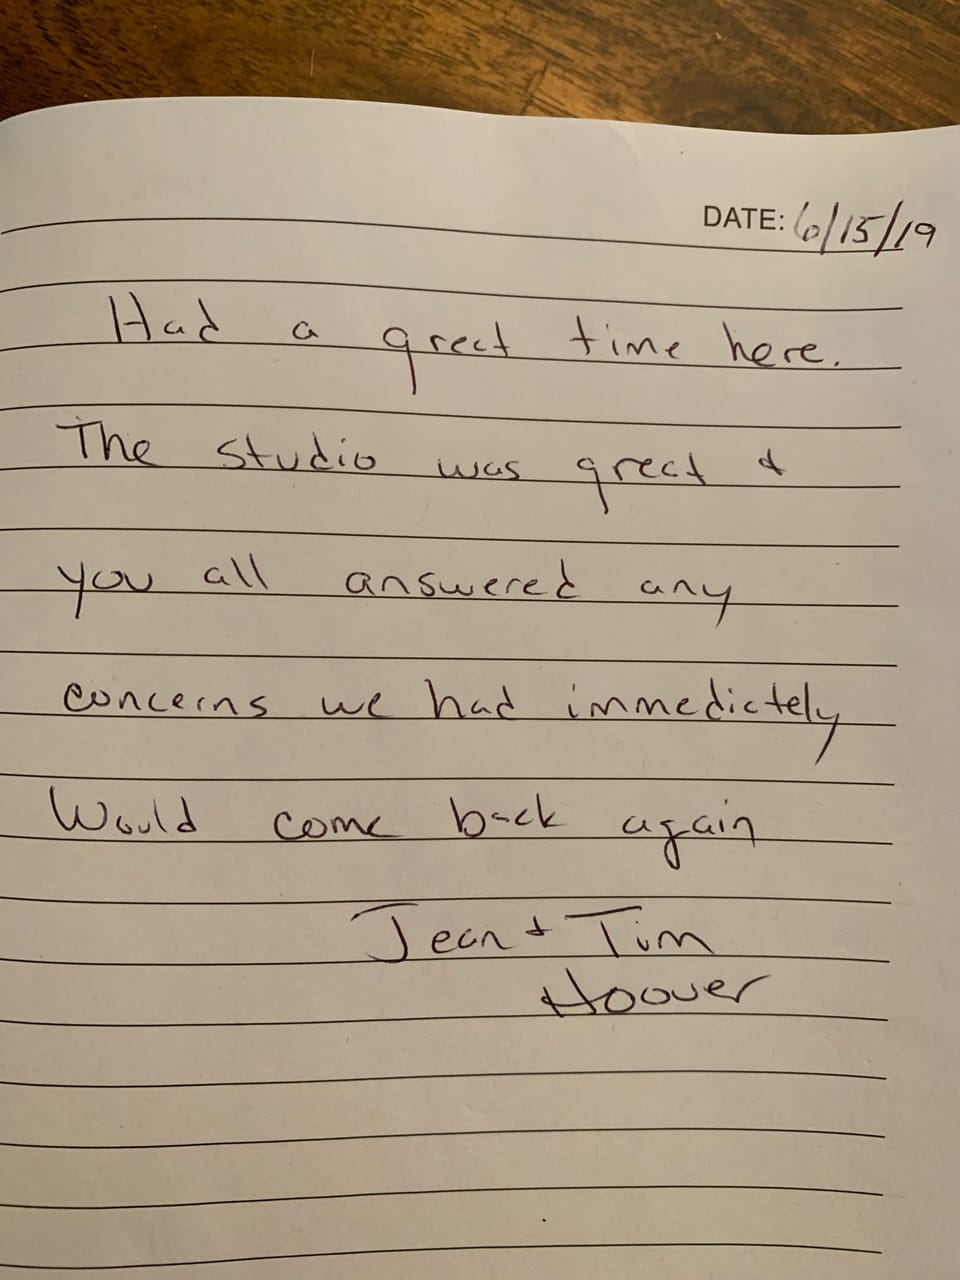 DATE: 6/15/19
Had a great time here.
The studio was great &
you all answered any
concerns we had immediately
Would come back again
Jean & Tim
Hoover